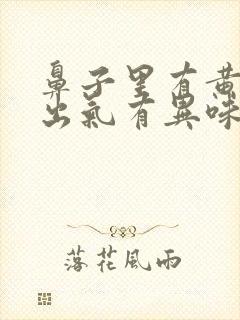 鼻子里有黄
出氣有異味
落花風雨